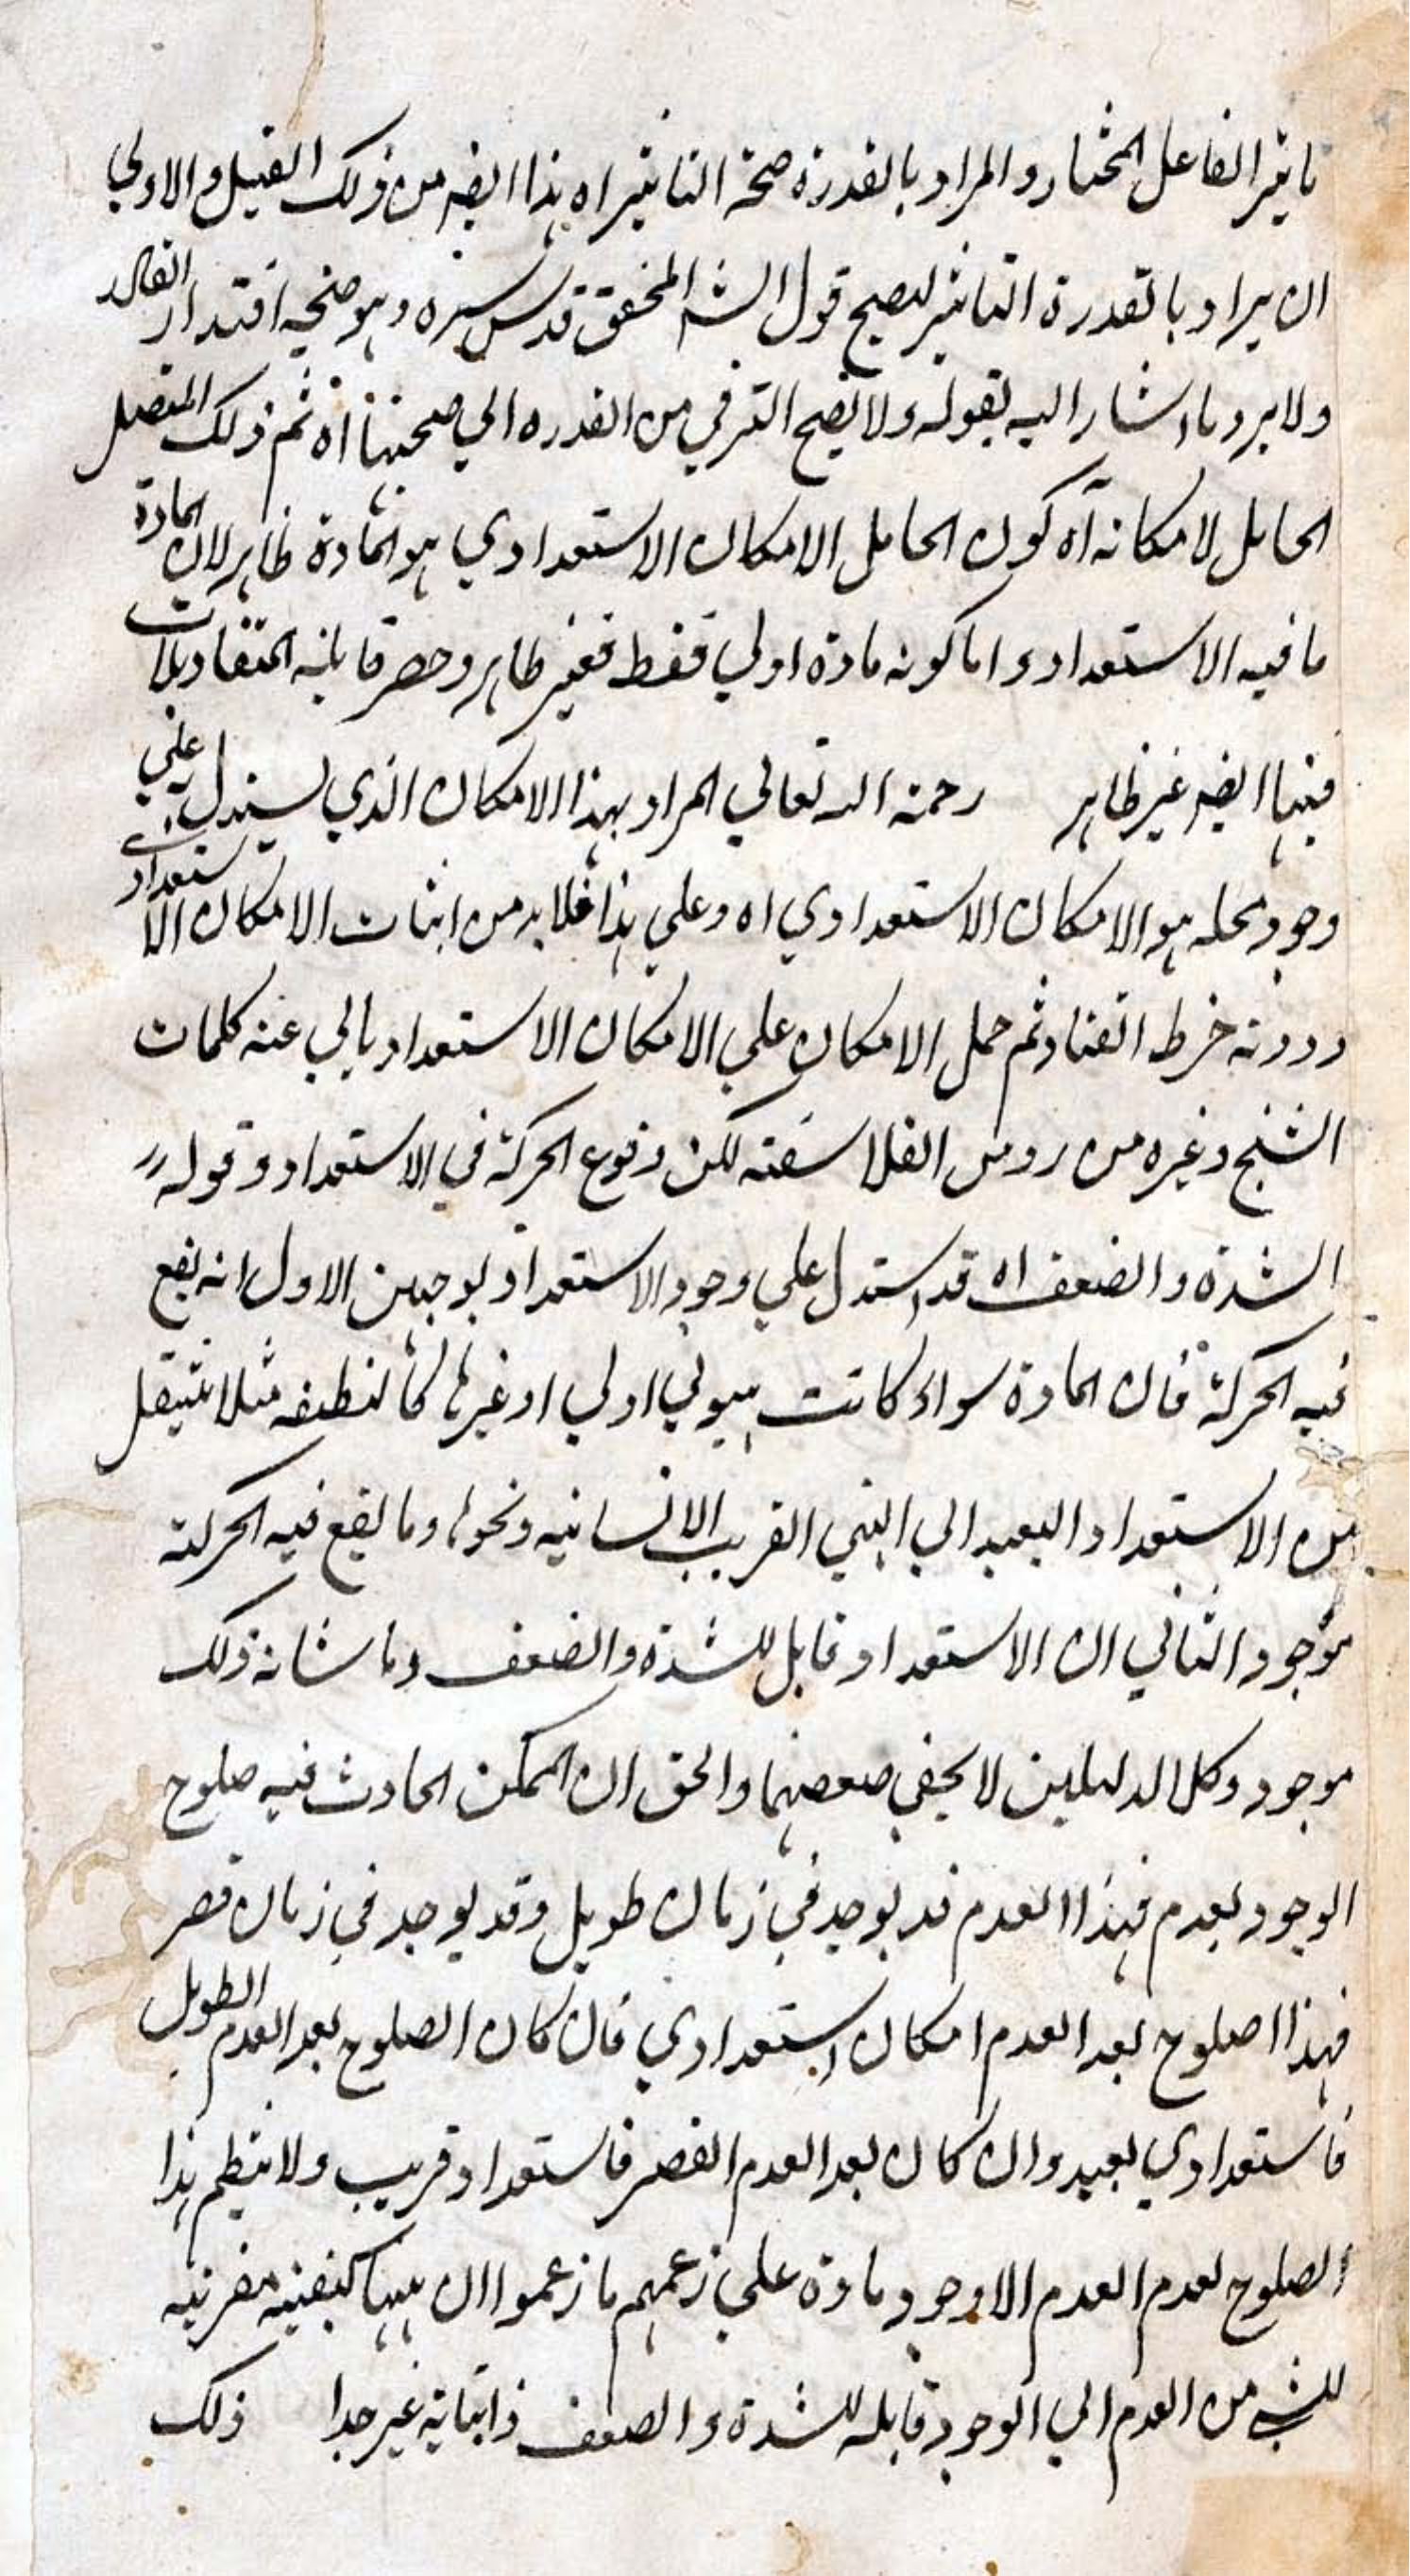 تاثير الفاعل المختار والمراد بالقدرة صحة التاثير اه هذا ايضه من ذلك القبيل والاولي
ان يراد بالقدرة التاثير ليصح قول الشه المحقق قدس سره وهو صحيه اقتدار القادر
ولا يرد ما اشار اليه بقوله ولا يصح الترقي من القدره الي صحتها اه ثم ذلك المتصل
الحامل لامكانه آه كون الحامل الامكان الاستعدادي هو المادة ظاهر لان المادة
ما فيه الاستعداد واما كونه مادة اولي فقط فغير ظاهر وحصر قابليه المتقابلات
فيها ايضه غير ظاهر رحمة الله تعالي المراد بهذا الامكان الذي يستدل علي
وجود محله هو الامكان الاستعدادي اه وعلي هذا فلا بد من اثبات الامكان الاستعدادي
ودونه خرط القتاد ثم حمل الامكان علي الامكان الاستعداد يابي عنه كلمات
الشيخ وغيره من روس الفلاسفته لكن وقوع الحركة في الاستعداد وقوله
الشدة والضعف اه قد استدل علي وجود الاستعداد بوجهين الاول انه يقع
فيه الحركة فان المادة سواء كانت هيولي اولي او غيرها كالنطفه مثلا ينتقل
من الاستعداد البعيد الي القريب الانسانيه ونحوها وما يقع فيه الحركته
موجود الثاني ان الاستعداد قابل للشدة والضعف وما شانه ذلك
موجود وكل الدليلين لا يخفي ضعفهما والحق ان الممكن الحادث فيه صلوح
الوجود بعدم فهذا العدم قد يوجد في زمان طويل وقد يوجد في زمان قصر
فهذا اصلوح بعد العدم امكان استعدادي فان كان الصلوح بعد العدم الطويل
فاستعدادي بعيد وان كان بعد العدم القصر فاستعداد قريب ولا ينظم هذا
الصلوح لعدم العدم الا وجود مادة علي زعمهم ما زعموا ان ههنا كيفيه مقربيه
للشي من العدم الي الوجود قابله للشدة والضعف فاثباته غير جدا ذلك